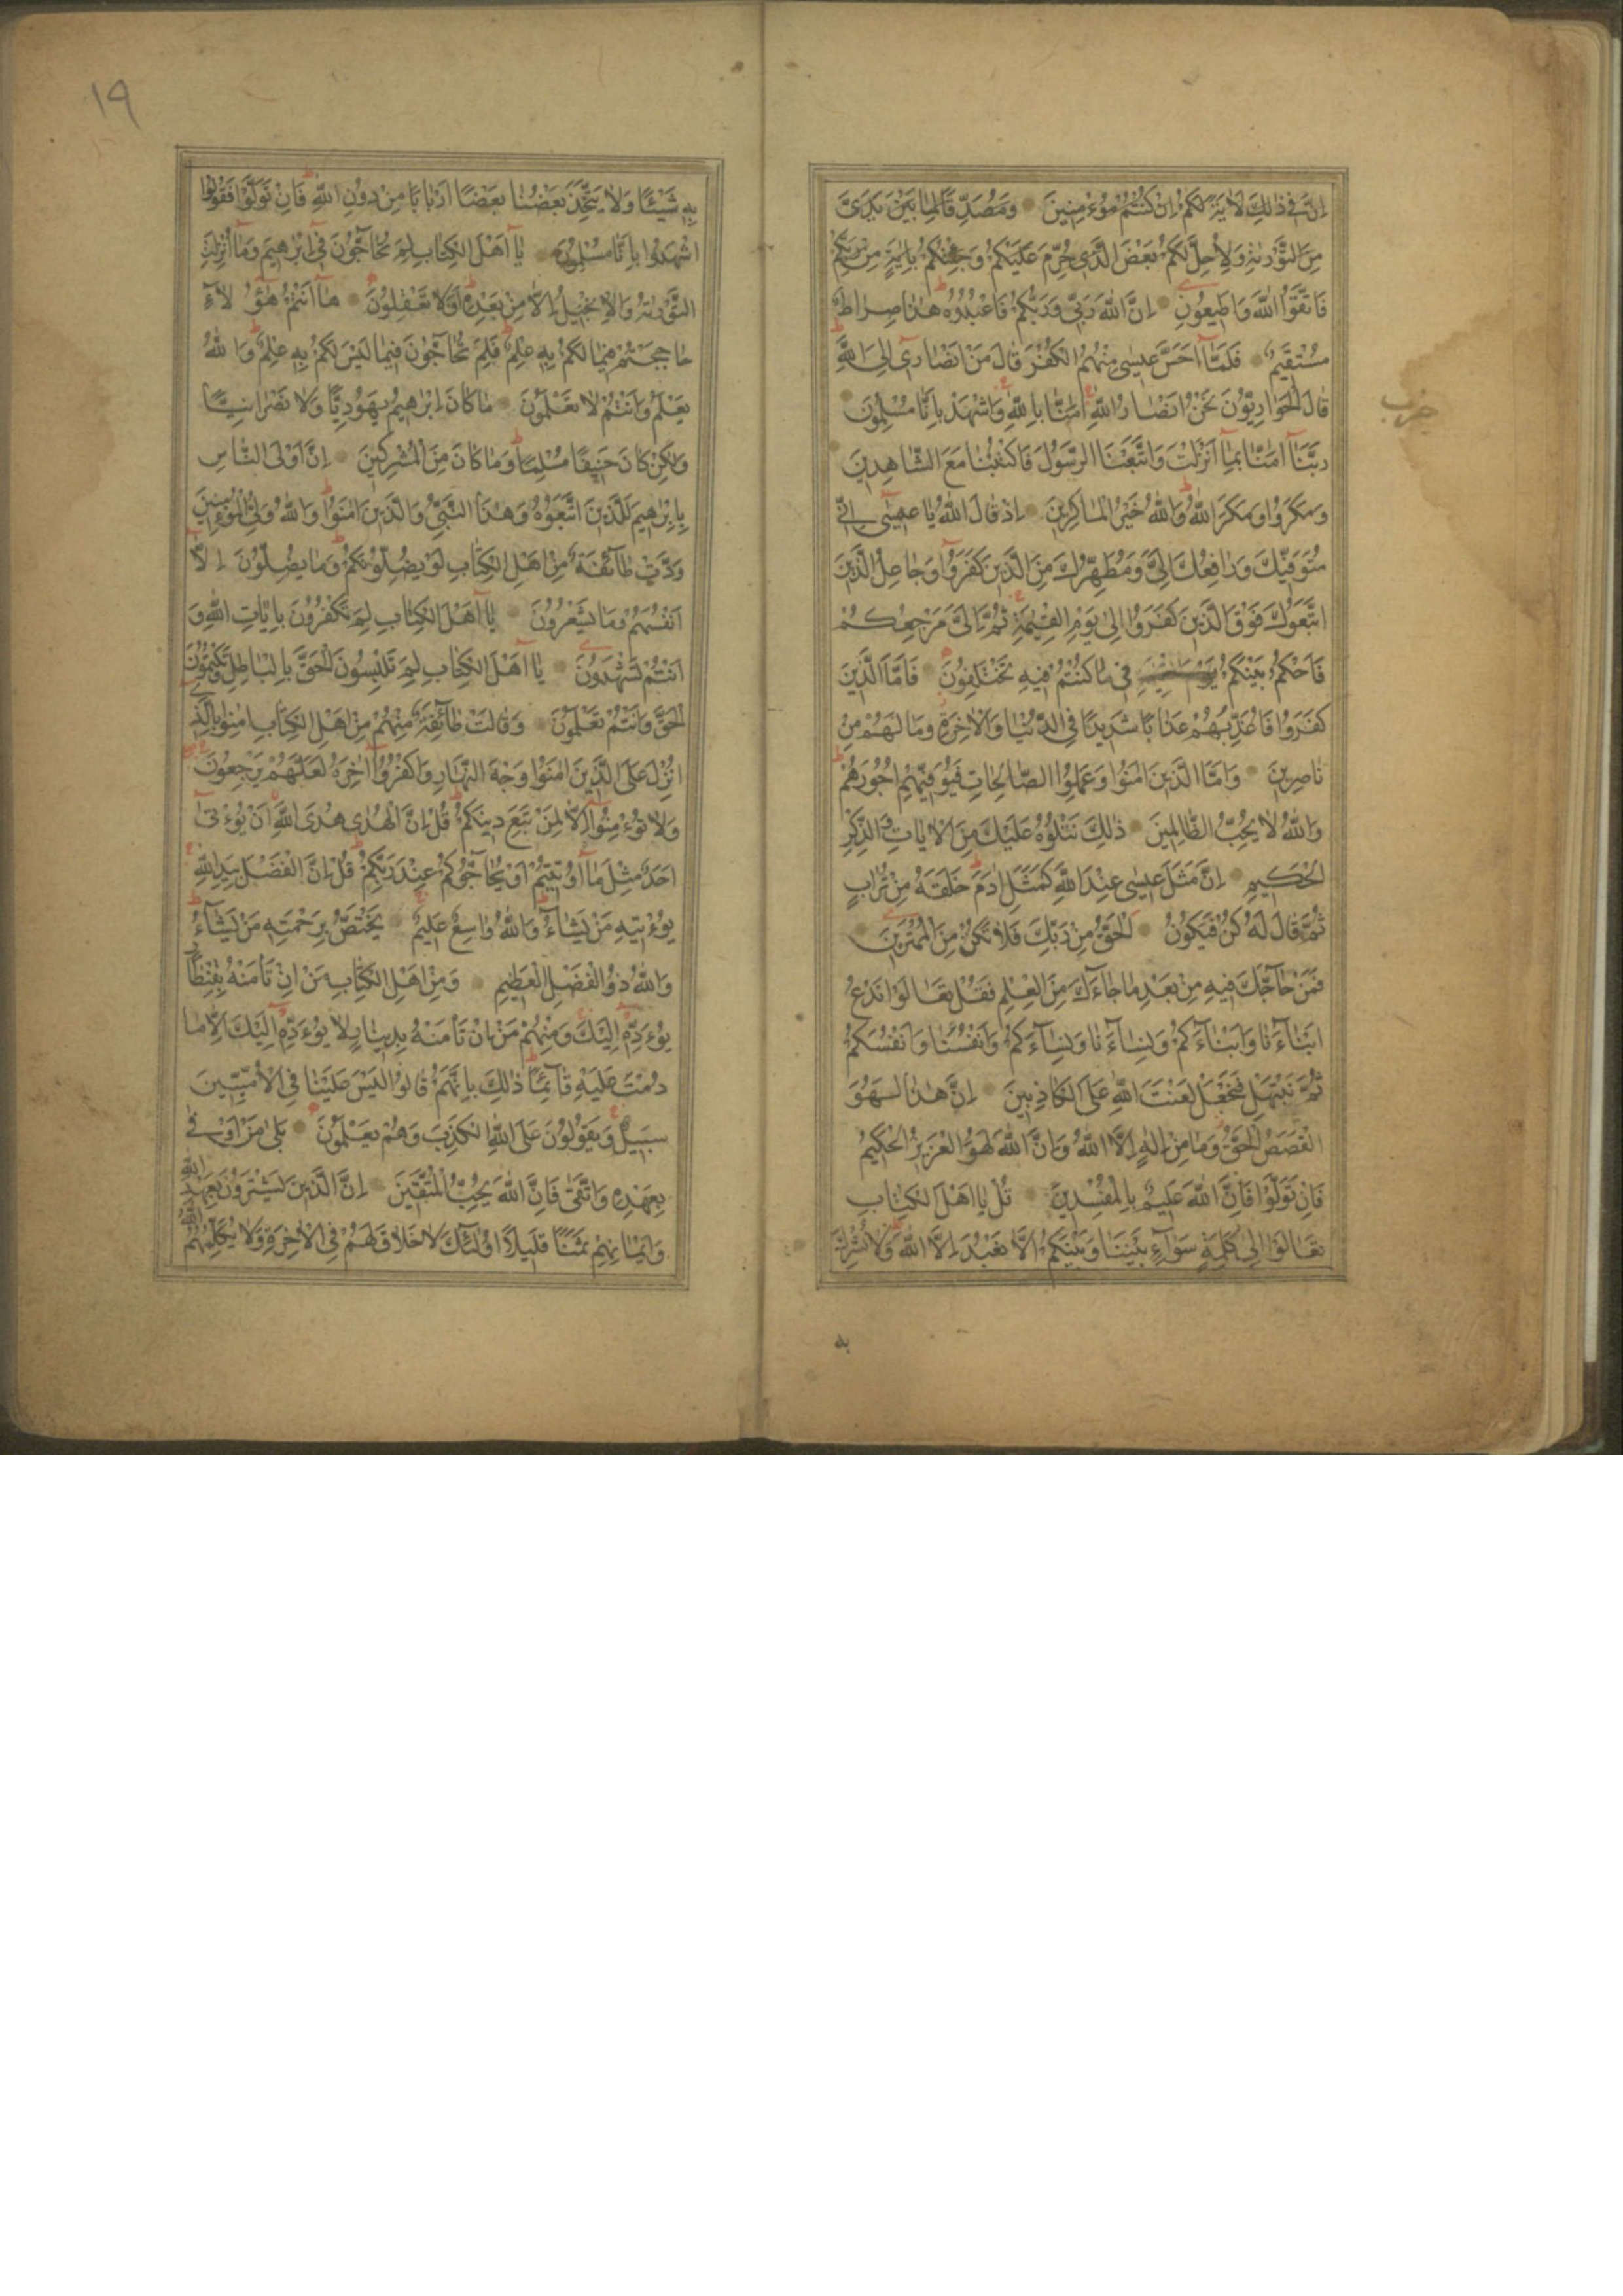 اِنَّ فٖى ذٰلِكَ لَاٰيَةً لَكُمْ اِنْ كُنْتُمْ مُؤْمِنٖينَ وَمُصَدِّقًا لِمَا بَيْنَ يَدَىَّ
مِنَ التَّوْرٰيةِ وَلِاُحِلَّ لَكُمْ بَعْضَ الَّذٖى حُرِّمَ عَلَيْكُمْ وَجِئْتُكُمْ بِاٰيَةٍ مِنْ رَبِّكُمْ
فَاتَّقُوا اللّٰهَ وَاَطٖيعُونِ اِنَّ اللّٰهَ رَبّٖى وَرَبُّكُمْ فَاعْبُدُوهُ هٰذَا صِرَاطٌ
مُسْتَقٖيمٌ فَلَمَّا اَحَسَّ عٖيسٰى مِنْهُمُ الْكُفْرَ قَالَ مَنْ اَنْصَارٖى اِلَى اللّٰهِ
قَالَ الْحَوَارِيُّونَ نَحْنُ اَنْصَارُ اللّٰهِ اٰمَنَّا بِاللّٰهِ وَاشْهَدْ بِاَنَّا مُسْلِمُونَ
حزب
رَبَّنَا اٰمَنَّا بِمَا اَنْزَلْتَ وَاتَّبَعْنَا الرَّسُولَ فَاكْتُبْنَا مَعَ الشَّاهِدٖينَ
وَمَكَرُوا وَمَكَرَ اللّٰهُ وَاللّٰهُ خَيْرُ الْمَاكِرٖينَ اِذْ قَالَ اللّٰهُ يَا عٖيسٰى اِنّٖى
مُتَوَفّٖيكَ وَرَافِعُكَ اِلَىَّ وَمُطَهِّرُكَ مِنَ الَّذٖينَ كَفَرُوا وَجَاعِلُ الَّذٖينَ
اتَّبَعُوكَ فَوْقَ الَّذٖينَ كَفَرُوا اِلٰى يَوْمِ الْقِيٰمَةِ ثُمَّ اِلَىَّ مَرْجِعُكُمْ
فَاَحْكُمُ بَيْنَكُمْ فٖى مَا كُنْتُمْ فٖيهِ تَخْتَلِفُونَ فَاَمَّا الَّذٖينَ
كَفَرُوا فَاُعَذِّبُهُمْ عَذَابًا شَدٖيدًا فِى الدُّنْيَا وَالْاٰخِرَةِ وَمَا لَهُمْ مِنْ
نَاصِرٖينَ وَاَمَّا الَّذٖينَ اٰمَنُوا وَعَمِلُوا الصَّالِحَاتِ فَيُوَفّٖيهِمْ اُجُورَهُمْ
وَاللّٰهُ لَا يُحِبُّ الظَّالِمٖينَ ذٰلِكَ نَتْلُوهُ عَلَيْكَ مِنَ الْاٰيَاتِ وَالذِّكْرِ
الْحَكٖيمِ اِنَّ مَثَلَ عٖيسٰى عِنْدَ اللّٰهِ كَمَثَلِ اٰدَمَ خَلَقَهُ مِنْ تُرَابٍ
ثُمَّ قَالَ لَهُ كُنْ فَيَكُونُ اَلْحَقُّ مِنْ رَبِّكَ فَلَا تَكُنْ مِنَ الْمُمْتَرٖينَ
فَمَنْ حَاجَّكَ فٖيهِ مِنْ بَعْدِ مَا جَاءَكَ مِنَ الْعِلْمِ فَقُلْ تَعَالَوْا نَدْعُ
اَبْنَاءَنَا وَاَبْنَاءَكُمْ وَنِسَاءَنَا وَنِسَاءَكُمْ وَاَنْفُسَنَا وَاَنْفُسَكُمْ
ثُمَّ نَبْتَهِلْ فَنَجْعَلْ لَعْنَتَ اللّٰهِ عَلَى الْكَاذِبٖينَ اِنَّ هٰذَا لَهُوَ
الْقَصَصُ الْحَقُّ وَمَا مِنْ اِلٰهٍ اِلَّا اللّٰهُ وَاِنَّ اللّٰهَ لَهُوَ الْعَزٖيزُ الْحَكٖيمُ
فَاِنْ تَوَلَّوْا فَاِنَّ اللّٰهَ عَلٖيمٌ بِالْمُفْسِدٖينَ قُلْ يَا اَهْلَ الْكِتَابِ
تَعَالَوْا اِلٰى كَلِمَةٍ سَوَاءٍ بَيْنَنَا وَبَيْنَكُمْ اَلَّا نَعْبُدَ اِلَّا اللّٰهَ وَلَا نُشْرِكَ
به
١٩
بِهٖ شَيْئًا وَلَا يَتَّخِذَ بَعْضُنَا بَعْضًا اَرْبَابًا مِنْ دُونِ اللّٰهِ فَاِنْ تَوَلَّوْا فَقُولُوا
اشْهَدُوا بِاَنَّا مُسْلِمُونَ يَا اَهْلَ الْكِتَابِ لِمَ تُحَاجُّونَ فٖى اِبْرٰهٖيمَ وَمَا اُنْزِلَتِ
التَّوْرٰيةُ وَالْاِنْجٖيلُ اِلَّا مِنْ بَعْدِهٖ اَفَلَا تَعْقِلُونَ هَا اَنْتُمْ هٰؤُلَاءِ
حَاجَجْتُمْ فٖيمَا لَكُمْ بِهٖ عِلْمٌ فَلِمَ تُحَاجُّونَ فٖيمَا لَيْسَ لَكُمْ بِهٖ عِلْمٌ وَاللّٰهُ
يَعْلَمُ وَاَنْتُمْ لَا تَعْلَمُونَ مَا كَانَ اِبْرٰهٖيمُ يَهُودِيًّا وَلَا نَصْرَانِيًّا
وَلٰكِنْ كَانَ حَنٖيفًا مُسْلِمًا وَمَا كَانَ مِنَ الْمُشْرِكٖينَ اِنَّ اَوْلَى النَّاسِ
بِاِبْرٰهٖيمَ لَلَّذٖينَ اتَّبَعُوهُ وَهٰذَا النَّبِىُّ وَالَّذٖينَ اٰمَنُوا وَاللّٰهُ وَلِىُّ الْمُؤْمِنٖينَ
وَدَّتْ طَائِفَةٌ مِنْ اَهْلِ الْكِتَابِ لَوْ يُضِلُّونَكُمْ وَمَا يُضِلُّونَ اِلَّا
اَنْفُسَهُمْ وَمَا يَشْعُرُونَ يَا اَهْلَ الْكِتَابِ لِمَ تَكْفُرُونَ بِاٰيَاتِ اللّٰهِ وَ
اَنْتُمْ تَشْهَدُونَ يَا اَهْلَ الْكِتَابِ لِمَ تَلْبِسُونَ الْحَقَّ بِالْبَاطِلِ وَتَكْتُمُونَ
الْحَقَّ وَاَنْتُمْ تَعْلَمُونَ وَقَالَتْ طَائِفَةٌ مِنْهُمْ مِنْ اَهْلِ الْكِتَابِ اٰمِنُوا بِالَّذٖى
اُنْزِلَ عَلَى الَّذٖينَ اٰمَنُوا وَجْهَ النَّهَارِ وَاكْفُرُوا اٰخِرَهُ لَعَلَّهُمْ يَرْجِعُونَ
وَلَا تُؤْمِنُوا اِلَّا لِمَنْ تَبِعَ دٖينَكُمْ قُلْ اِنَّ الْهُدٰى هُدَى اللّٰهِ اَنْ يُؤْتٰى
اَحَدٌ مِثْلَ مَا اُوتٖيتُمْ اَوْ يُحَاجُّوكُمْ عِنْدَ رَبِّكُمْ قُلْ اِنَّ الْفَضْلَ بِيَدِ اللّٰهِ
يُؤْتٖيهِ مَنْ يَشَاءُ وَاللّٰهُ وَاسِعٌ عَلٖيمٌ يَخْتَصُّ بِرَحْمَتِهٖ مَنْ يَشَاءُ
وَاللّٰهُ ذُو الْفَضْلِ الْعَظٖيمِ وَمِنْ اَهْلِ الْكِتَابِ مَنْ اِنْ تَأْمَنْهُ بِقِنْطَارٍ
يُؤَدِّهٖ اِلَيْكَ وَمِنْهُمْ مَنْ اِنْ تَأْمَنْهُ بِدٖينَارٍ لَا يُؤَدِّهٖ اِلَيْكَ اِلَّا مَا
دُمْتَ عَلَيْهِ قَائِمًا ذٰلِكَ بِاَنَّهُمْ قَالُوا لَيْسَ عَلَيْنَا فِى الْاُمِّيّٖنَ
سَبٖيلٌ وَيَقُولُونَ عَلَى اللّٰهِ الْكَذِبَ وَهُمْ يَعْلَمُونَ بَلٰى مَنْ اَوْفٰى
بِعَهْدِهٖ وَاتَّقٰى فَاِنَّ اللّٰهَ يُحِبُّ الْمُتَّقٖينَ اِنَّ الَّذٖينَ يَشْتَرُونَ بِعَهْدِ اللّٰهِ
وَاَيْمَانِهِمْ ثَمَنًا قَلٖيلًا اُولٰئِكَ لَا خَلَاقَ لَهُمْ فِى الْاٰخِرَةِ وَلَا يُكَلِّمُهُمُ اللّٰهُ